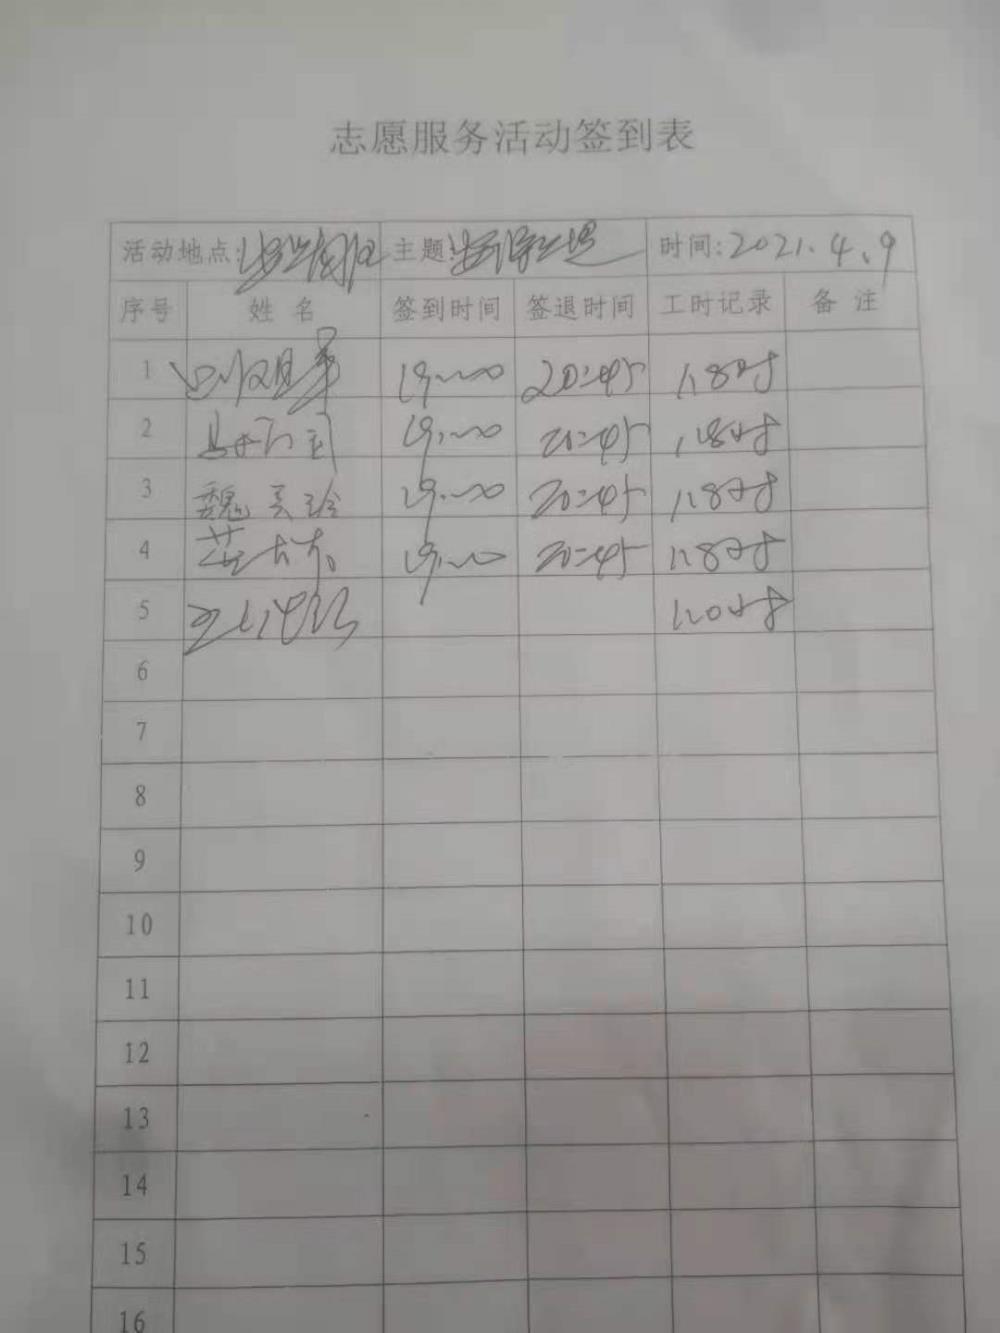 志愿服务活动签到表
活动地点: 主题: 时间:2021.4.9
序号 姓名 签到时间 签退时间 工时记录 备注
1 19:00 20:45 1.8时
2 19:00 20:45 1.8时
3 魏 19:00 20:45 1.8时
4 19:00 20:45 1.8时
5 1.0时
6
7
8
9
10
11
12
13
14
15
16